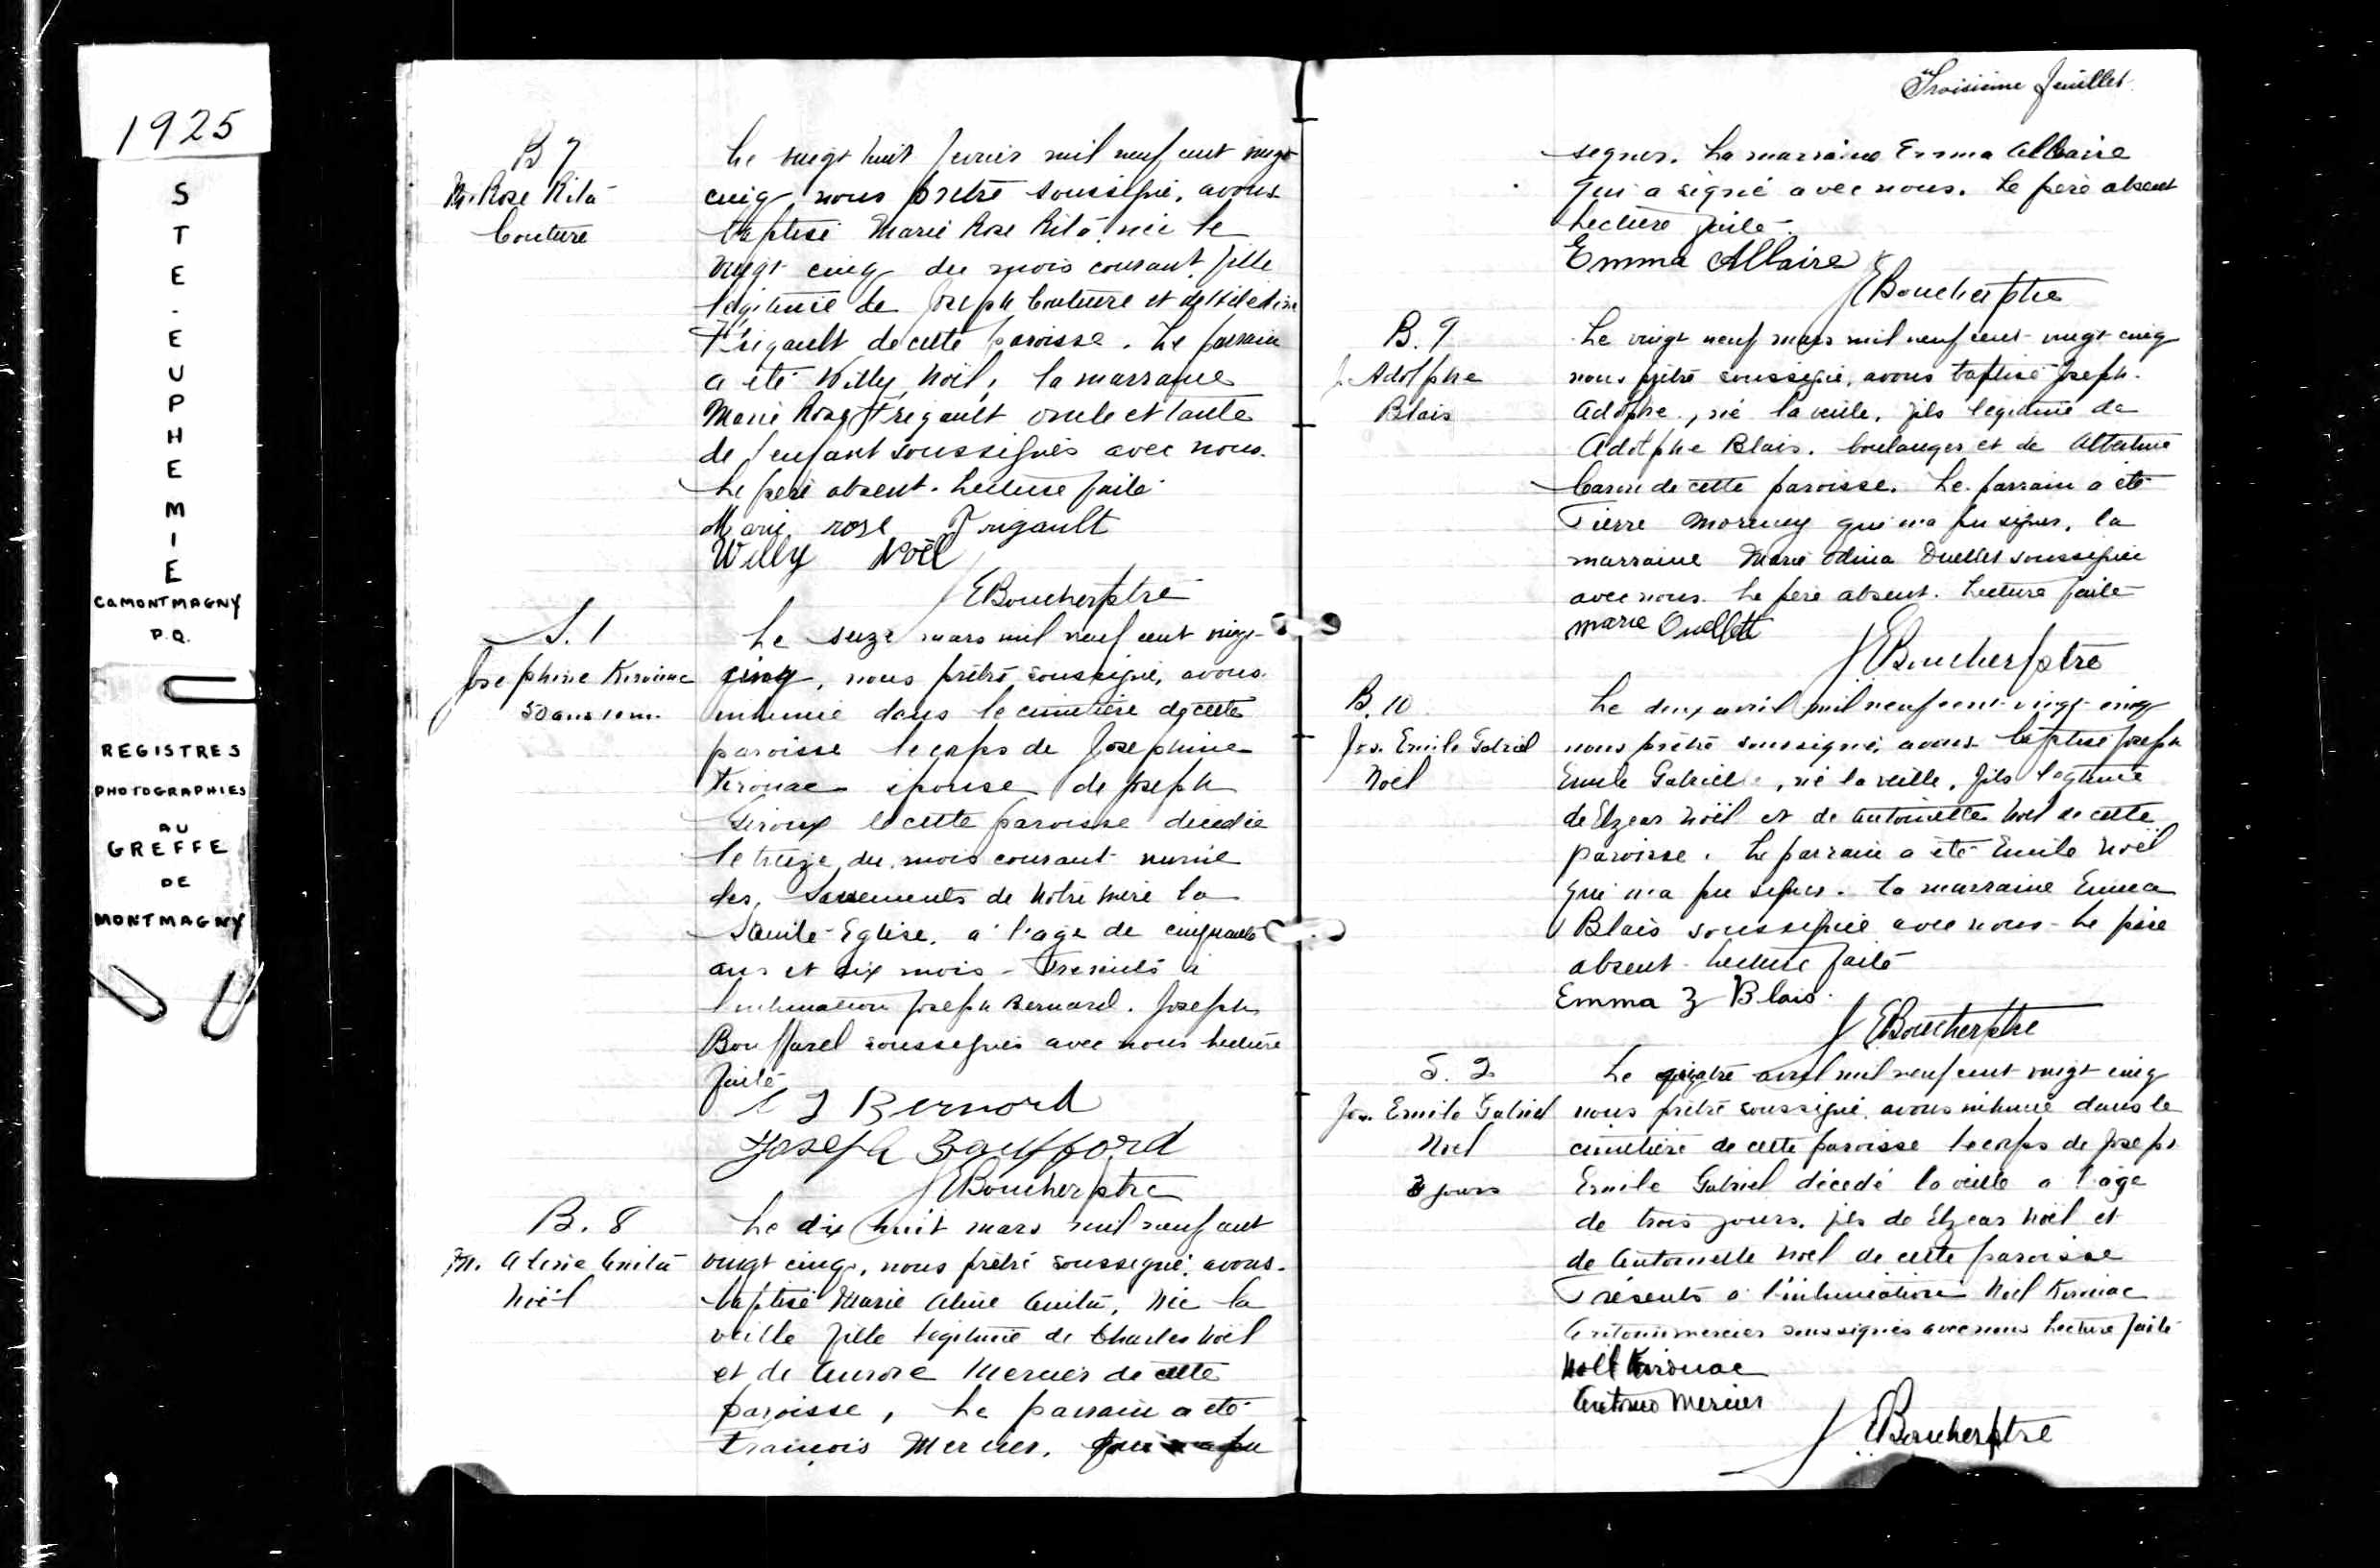 1925
STE-EUPHEMIE
Co MONTMAGNY
P.Q.
REGISTRES
PHOTOGRAPHIES
AU
GREFFE
DE
MONTMAGNY
B 7
M. Rose Rita
Couture
Le vingt huit fevrier mil neuf cent vingt
cinq nous prêtre soussigné, avons
baptisé Marie Rose Rita née le
vingt cinq du mois courant, fille
légitime de Joseph Couture et de
Frigault de cette paroisse. Le parrain
a été Willy Noël, la marraine
Marie Rose Frigault oncle et tante
de l'enfant soussignés avec nous.
Le père absent. Lecture faite
Marie rose Frigault
Willy Noël
J E Boucher ptre
S. 1
Josephine Kirouac
50 ans
Le seize mars mil neuf cent vingt-
cinq, nous prêtre soussigné, avons
inhumé dans le cimetière de cette
paroisse le corps de Josephine
Kirouac épouse de Joseph
Giroux de cette paroisse décédée
le treize du mois courant munie
des Sacrements de Notre Mère la
Sainte Eglise, a l'age de cinquante
ans et six mois - Presents à
l'inhumation Joseph Bernard. Joseph
Bouffard soussignés avec nous lecture
faite
J Bernard
Joseph Boufford
J E Boucher ptre
B. 8
M. Aline Anita
Noël
Le dix huit mars mil neuf cent
vingt cinq, nous prêtre soussigné, avons
baptisé Marie Aline Anita, née la
veille fille légitime de Charles Noël
et de Aurore Mercier de cette
paroisse, Le parrain a été
François Mercier, qui n'a pu
Troisième feuillet
signer. La marraine Emma Allaire
qui a signé avec nous. Le père absent
Lecture faite.
Emma Allaire
J E Boucher ptre
B. 9
J. Adolphe
Blais
Le vingt neuf mars mil neuf cent vingt cinq
nous prêtre soussigné, avons baptisé Joseph
Adolphe, né la veille, fils légitime de
Adolphe Blais, boulanger et de
Caron de cette paroisse. Le parrain a été
Pierre Morency qui n'a pu signer, la
marraine Marie Odina Ouellet soussignée
avec nous. Le père absent. Lecture faite
marie Ouellett
J E Boucher ptre
B. 10
Jos. Emile Gabriel
Noel
Le deux avril mil neuf cent vingt-cinq
nous prêtre soussigné, avons baptisé Joseph
Emile Gabriel, né la veille, fils légitime
de Elzear Noël et de Antoinette Noel de cette
paroisse. Le parrain a été Emile Noël
qui n'a pu signer. La marraine Emma
Blais soussignée avec nous - Le père
absent. Lecture faite
Emma Blais
J E Boucher ptre
S. 2
Jos. Emile Gabriel
Noel
3 jours
Le quatre avril mil neuf cent vingt cinq
nous prêtre soussigné, avons inhumé dans le
cimetière de cette paroisse le corps de Joseph
Emile Gabriel décédé la veille a l'âge
de trois jours, fils de Elzear Noël et
de Antoinette Noel de cette paroisse
Présents a l'inhumation Noël Kirouac
Antonio mercier soussignés avec nous Lecture faite
Noël Kirouac
Antonio Mercier
J E Boucher ptre